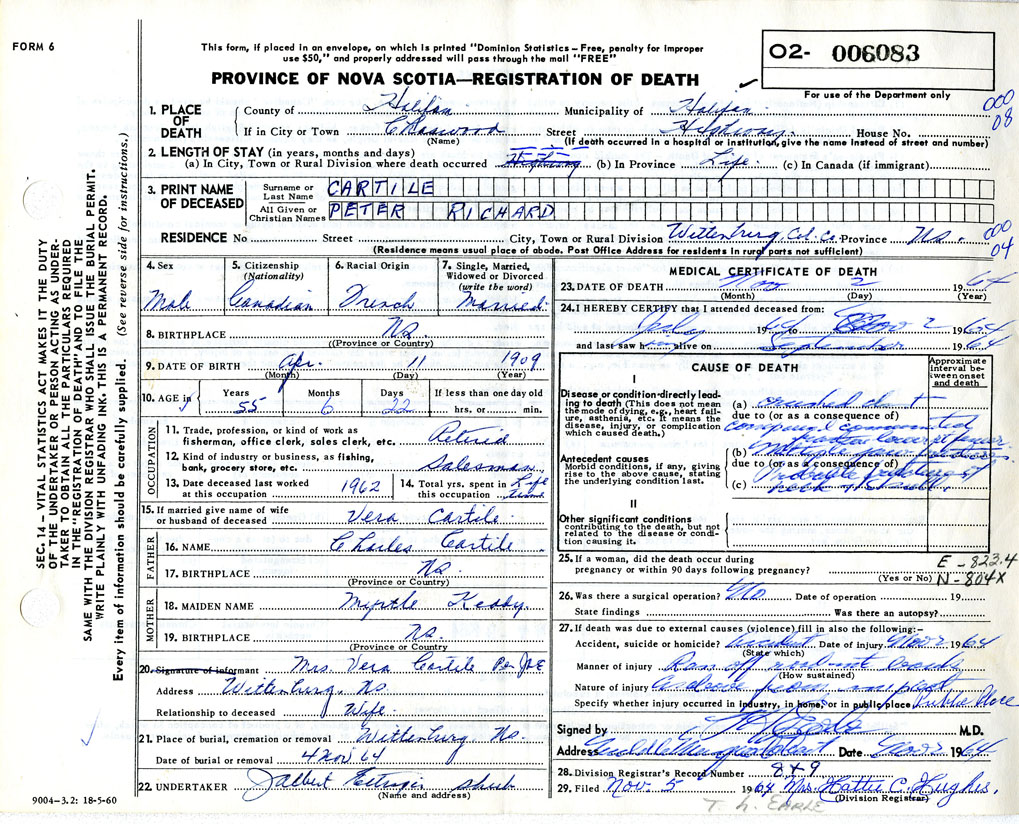 FORM 6
This form, if placed in an envelope, on which is printed "Dominion Statistics – Free, penalty for improper
use $50," and properly addressed will pass through the mail "FREE"
PROVINCE OF NOVA SCOTIA—REGISTRATION OF DEATH
O2- 006083
For use of the Department only
000
08
1. PLACE OF DEATH
County of Halifax Municipality of Halifax
If in City or Town Street Highway House No.
(Name) (If death occurred in a hospital or institution, give the name instead of street and number)
2. LENGTH OF STAY (in years, months and days)
(a) In City, Town or Rural Division where death occurred (b) In Province Life. (c) In Canada (if immigrant)
3. PRINT NAME OF DECEASED
Surname or Last Name CARTILE
All Given or Christian Names PETER RICHARD
RESIDENCE No Street City, Town or Rural Division Wittenburg Col. Co. Province N.S.
000
04
(Residence means usual place of abode. Post Office Address for residents in rural parts not sufficient)
4. Sex Male
5. Citizenship (Nationality) Canadian
6. Racial Origin French
7. Single, Married, Widowed or Divorced (write the word) Married.
8. BIRTHPLACE N.S.
(Province or Country)
9. DATE OF BIRTH Apr. 11 1909
(Month) (Day) (Year)
10. AGE in Years 55 Months 6 Days 22 If less than one day old hrs. or min.
OCCUPATION
11. Trade, profession, or kind of work as fisherman, office clerk, sales clerk, etc. Retired
12. Kind of industry or business, as fishing, bank, grocery store, etc. Salesman
13. Date deceased last worked at this occupation 1962
14. Total yrs. spent in this occupation Life time
15. If married give name of wife or husband of deceased Vera Cartile
FATHER
16. NAME Charles Cartile
17. BIRTHPLACE N.S.
(Province or Country)
MOTHER
18. MAIDEN NAME Myrtle
19. BIRTHPLACE N.S.
(Province or Country)
20. Signature of informant Mrs. Vera Cartile Per JOE
Address Wittenburg, N.S.
Relationship to deceased Wife.
21. Place of burial, cremation or removal Wittenburg N.S.
Date of burial or removal 4 Nov 64
22. UNDERTAKER
(Name and address)
9004—3.2: 18-5-60
MEDICAL CERTIFICATE OF DEATH
23. DATE OF DEATH Nov 2 1964
(Month) (Day) (Year)
24. I HEREBY CERTIFY that I attended deceased from:
July 1964 to Nov 2 1964
and last saw h alive on September 1964
CAUSE OF DEATH
Approximate interval between onset and death
I
Disease or condition directly leading to death (This does not mean the mode of dying, e.g., heart failure, asthenia, etc. It means the disease, injury, or complication which caused death.)
(a) crushed chest
due to (or as a consequence of)
compound comminuted
(b)
Antecedent causes
Morbid conditions, if any, giving rise to the above cause, stating the underlying condition last.
due to (or as a consequence of)
(c) neck & skull
II
Other significant conditions
contributing to the death, but not related to the disease or condition causing it.
25. If a woman, did the death occur during
pregnancy or within 90 days following pregnancy?
(Yes or No)
E - 823.4
N - 804X
26. Was there a surgical operation? No Date of operation 19
State findings Was there an autopsy?
27. If death was due to external causes (violence) fill in also the following:—
Accident, suicide or homicide? accident Date of injury Nov 2 1964
(State which)
Manner of injury Ran off road
(How sustained)
Nature of injury
Specify whether injury occurred in industry, in home, or in public place Public Place
Signed by M.D.
Address Date Nov 2 1964
28. Division Registrar's Record Number 849
29. Filed Nov 5 1964 Mrs. Hattie C. Hughes,
(Division Registrar)
T. H. EARLE
SEC. 14 – VITAL STATISTICS ACT MAKES IT THE DUTY
OF THE UNDERTAKER OR PERSON ACTING AS UNDER-
TAKER TO OBTAIN ALL THE PARTICULARS REQUIRED
IN THE "REGISTRATION OF DEATH" AND TO FILE THE
SAME WITH THE DIVISION REGISTRAR WHO SHALL ISSUE THE BURIAL PERMIT.
WRITE PLAINLY WITH UNFADING INK. THIS IS A PERMANENT RECORD.
Every item of information should be carefully supplied. (See reverse side for instructions.)